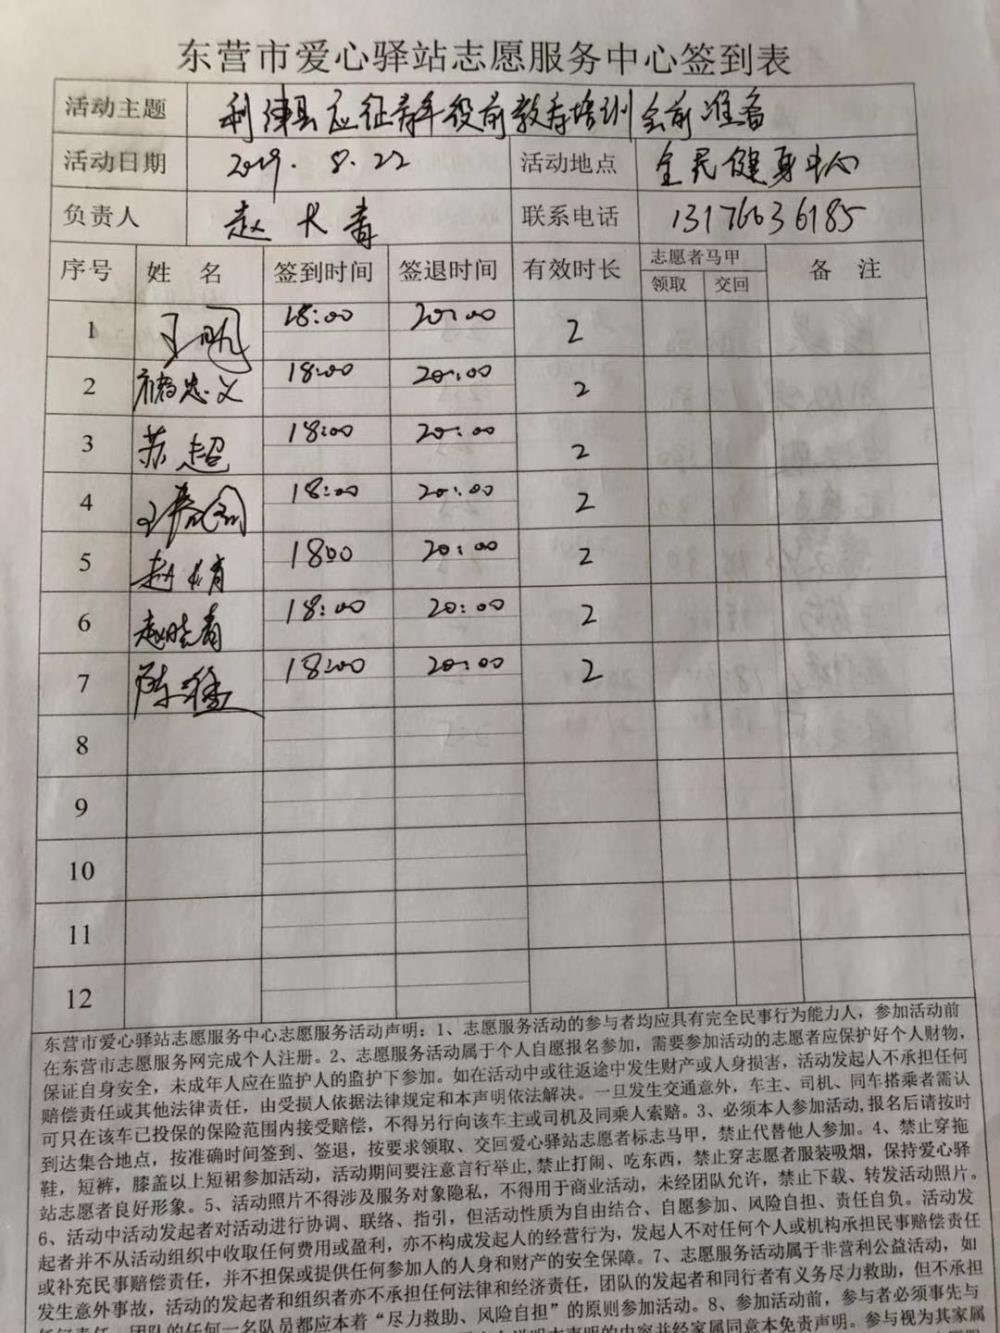 东营市爱心驿站志愿服务中心签到表
活动主题 利津县应征青年役前教育培训会前准备
活动日期 2019.8.22 活动地点 全民健身中心
负责人 赵 青 联系电话 13176636185
序号 姓 名 签到时间 签退时间 有效时长 志愿者马甲 备 注
领取 交回
1 18:00 20:00 2
2 忠义 18:00 20:00 2
3 苏超 18:00 20:00 2
4 王 18:00 20:00 2
5 赵 1800 20:00 2
6 赵晓青 18:00 20:00 2
7 陈 18:00 20:00 2
8
9
10
11
12
东营市爱心驿站志愿服务中心志愿服务活动声明：1、志愿服务活动的参与者均应具有完全民事行为能力人，参加活动前
在东营市志愿服务网完成个人注册。2、志愿服务活动属于个人自愿报名参加，需要参加活动的志愿者应保护好个人财物，
保证自身安全，未成年人应在监护人的监护下参加。如在活动中或往返途中发生财产或人身损害，活动发起人不承担任何
赔偿责任或其他法律责任，由受损人依据法律规定和本声明依法解决。一旦发生交通意外，车主、司机、同车搭乘者需认
可只在该车已投保的保险范围内接受赔偿，不得另行向该车主或司机及同乘人索赔。3、必须本人参加活动，报名后请按时
到达集合地点，按准确时间签到、签退，按要求领取、交回爱心驿站志愿者标志马甲，禁止代替他人参加。4、禁止穿拖
鞋，短裤，膝盖以上短裙参加活动，活动期间要注意言行举止，禁止打闹、吃东西，禁止穿志愿者服装吸烟，保持爱心驿
站志愿者良好形象。5、活动照片不得涉及服务对象隐私，不得用于商业活动，未经团队允许，禁止下载、转发活动照片。
6、活动中活动发起者对活动进行协调、联络、指引，但活动性质为自由结合、自愿参加、风险自担、责任自负。活动发
起者并不从活动组织中收取任何费用或盈利，亦不构成发起人的经营行为，发起人不对任何个人或机构承担民事赔偿责任
或补充民事赔偿责任，并不担保或提供任何参加人的人身和财产的安全保障。7、志愿服务活动属于非营利公益活动，如
发生意外事故，活动的发起者和组织者亦不承担任何法律和经济责任，团队的发起者和同行者有义务尽力救助，但不承担
任何责任。团队的任何一名队员都应本着“尽力救助、风险自担”的原则参加活动。8、参加活动前，参与者必须事先与
本声明的内容并经家属同意本免责声明。参与视为其家属